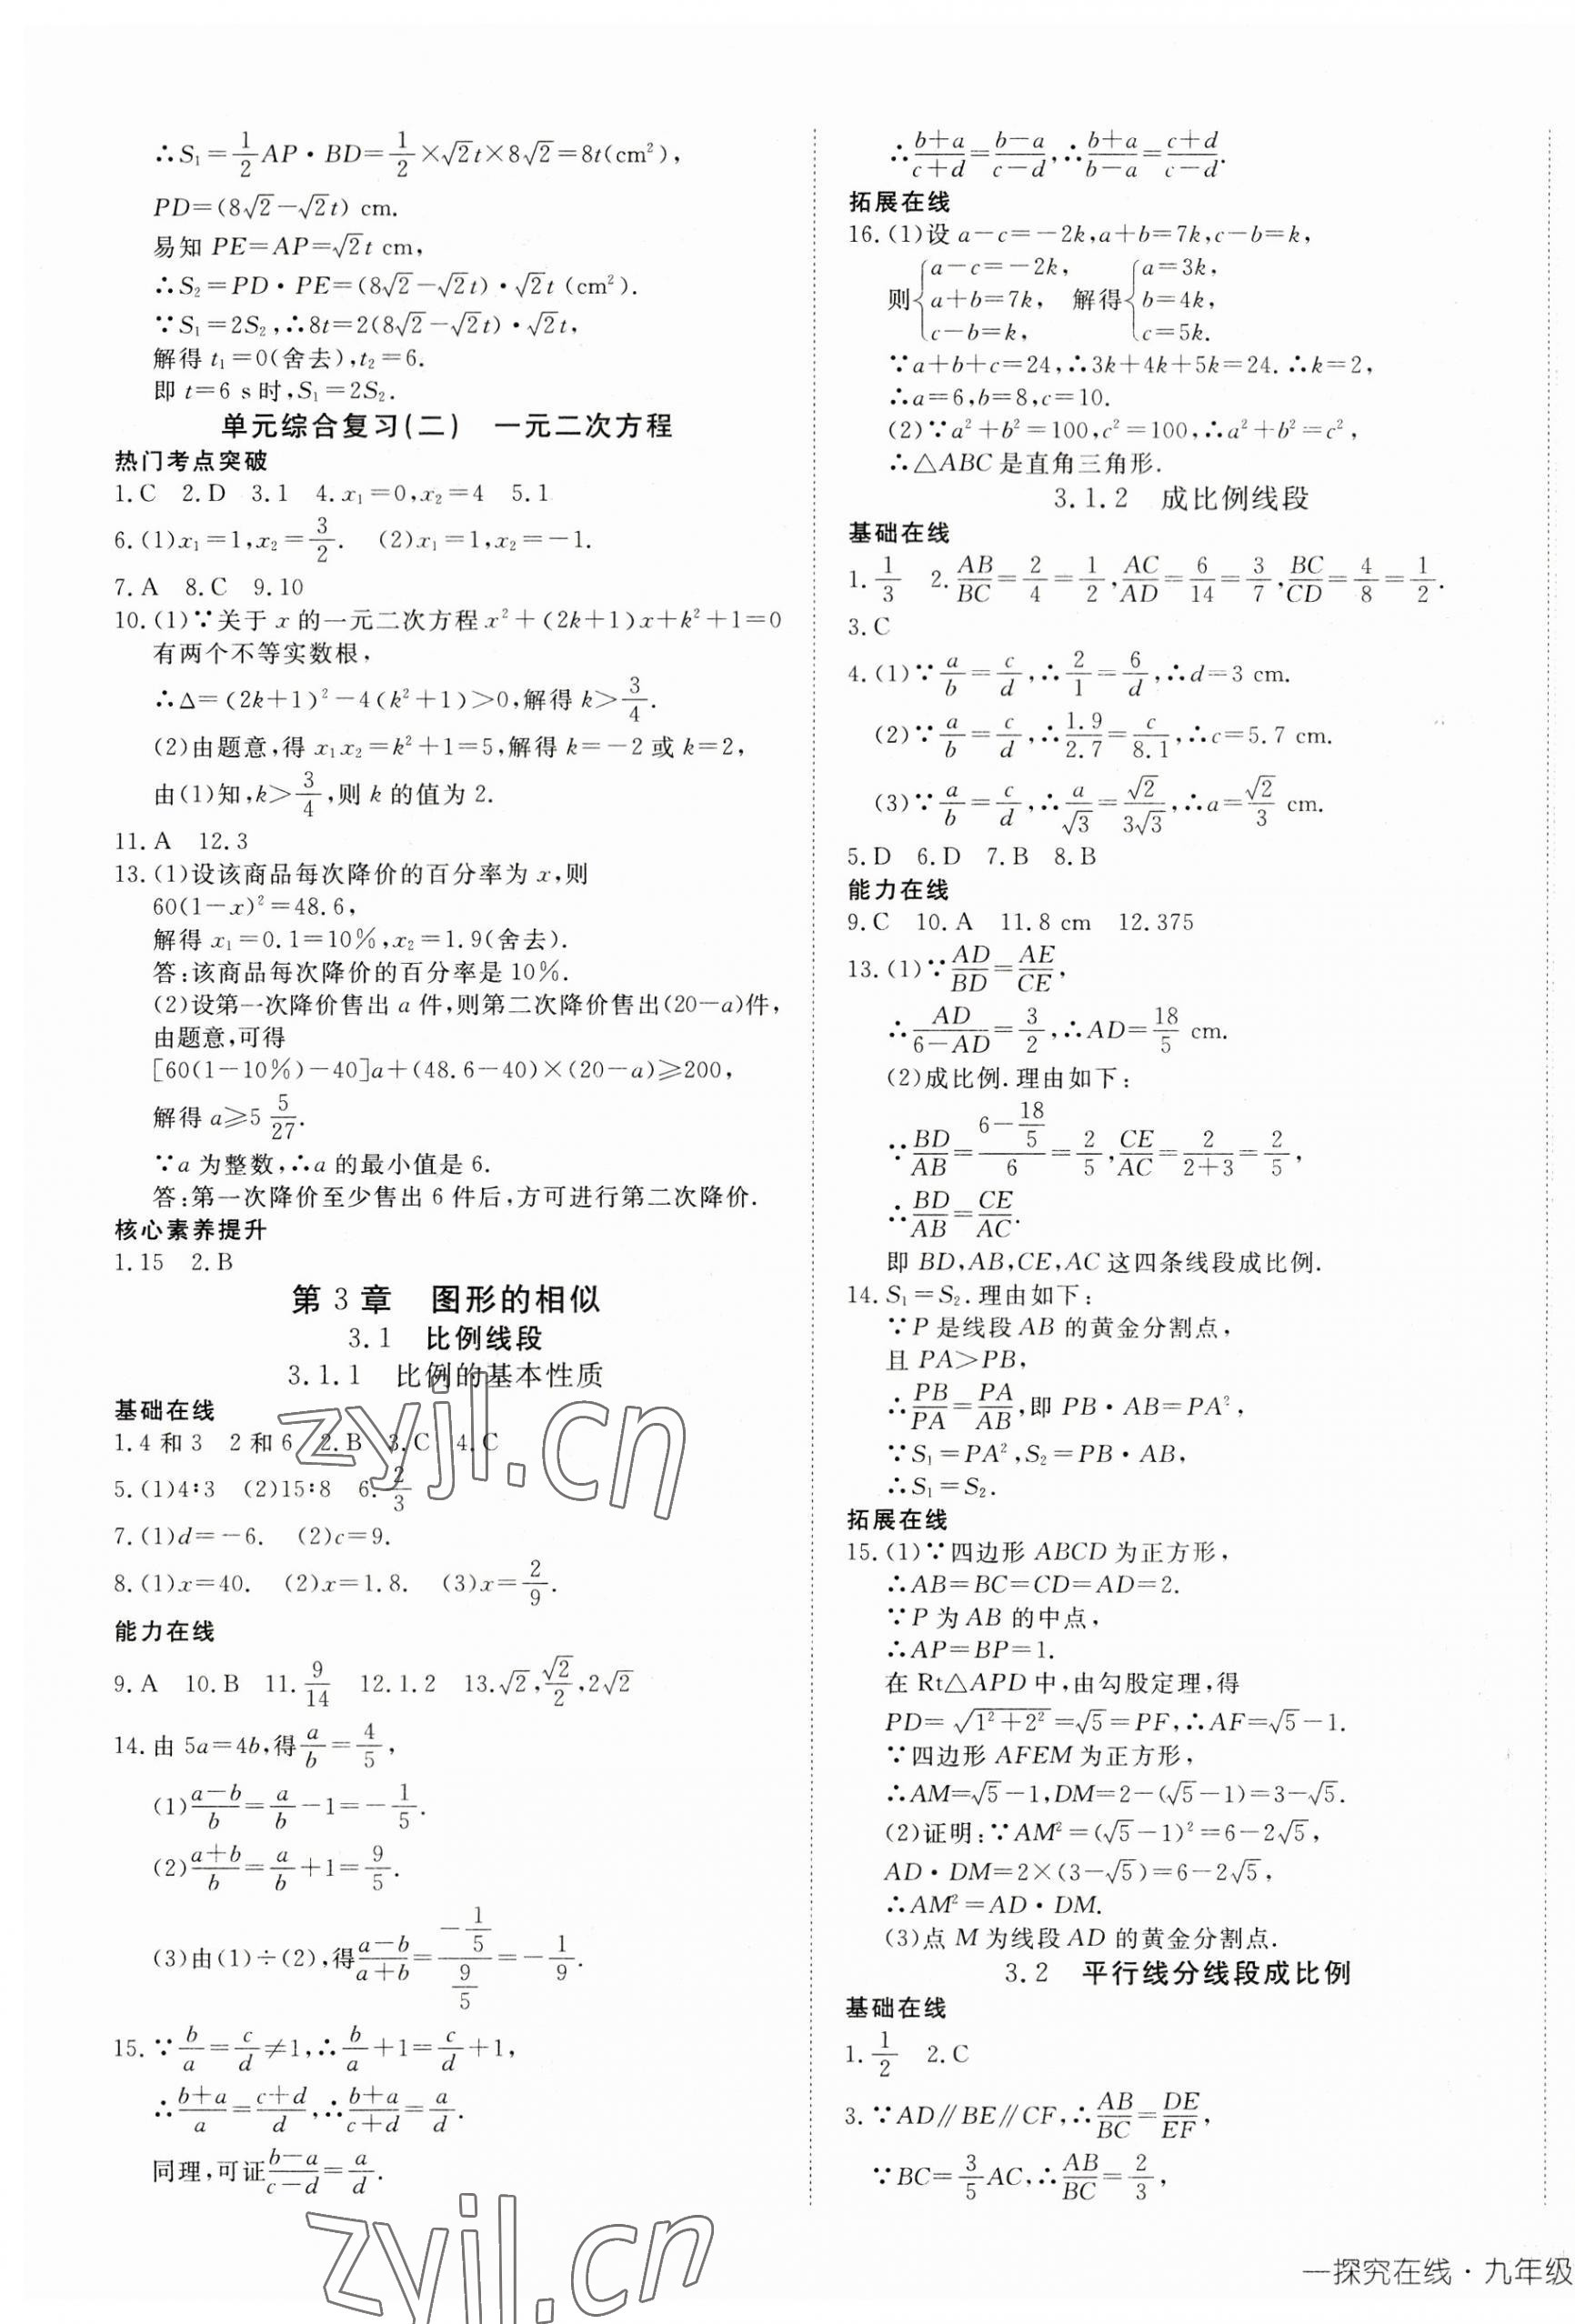 ∴S₁=1/2 AP·BD=1/2×√2t×8√2=8t(cm²),
PD=(8√2-√2t) cm.
易知 PE=AP=√2t cm,
∴S₂=PD·PE=(8√2-√2t)·√2t (cm²).
∵S₁=2S₂,∴8t=2(8√2-√2t)·√2t,
解得 t₁=0(舍去),t₂=6.
即 t=6 s时,S₁=2S₂.
单元综合复习(二) 一元二次方程
热门考点突破
1.C 2.D 3.1 4.x₁=0,x₂=4 5.1
6.(1)x₁=1,x₂=3/2. (2)x₁=1,x₂=-1.
7.A 8.C 9.10
10.(1)∵关于 x 的一元二次方程 x²+(2k+1)x+k²+1=0
有两个不等实数根,
∴Δ=(2k+1)²-4(k²+1)>0,解得 k>3/4.
(2)由题意,得 x₁x₂=k²+1=5,解得 k=-2 或 k=2,
由(1)知,k>3/4,则 k 的值为 2.
11.A 12.3
13.(1)设该商品每次降价的百分率为 x,则
60(1-x)²=48.6,
解得 x₁=0.1=10%,x₂=1.9(舍去).
答:该商品每次降价的百分率是 10%.
(2)设第一次降价售出 a 件,则第二次降价售出(20-a)件,
由题意,可得
[60(1-10%)-40]a+(48.6-40)×(20-a)≥200,
解得 a≥5 5/27.
∵a 为整数,∴a 的最小值是 6.
答:第一次降价至少售出 6 件后,方可进行第二次降价.
核心素养提升
1.15 2.B
第 3 章 图形的相似
3.1 比例线段
3.1.1 比例的基本性质
基础在线
1.4 和 3 2 和 6 2.B 3.C 4.C
5.(1)4∶3 (2)15∶8 6.2/3
7.(1)d=-6. (2)c=9.
8.(1)x=40. (2)x=1.8. (3)x=2/9.
能力在线
9.A 10.B 11.9/14 12.1.2 13.√2,√2/2,2√2
14.由 5a=4b,得 a/b=4/5,
(1)(a-b)/b=a/b-1=-1/5.
(2)(a+b)/b=a/b+1=9/5.
(3)由(1)÷(2),得(a-b)/(a+b)=(-1/5)/(9/5)=-1/9.
15.∵b/a=c/d≠1,∴b/a+1=c/d+1,
∴(b+a)/a=(c+d)/d,∴(b+a)/(c+d)=a/d.
同理,可证(b-a)/(c-d)=a/d.
zyjl.cn
zyjl.cn
∴(b+a)/(c+d)=(b-a)/(c-d),∴(b+a)/(b-a)=(c+d)/(c-d).
拓展在线
16.(1)设 a-c=-2k,a+b=7k,c-b=k,
则{a-c=-2k, a+b=7k, c-b=k, 解得{a=3k, b=4k, c=5k.
∵a+b+c=24,∴3k+4k+5k=24.∴k=2,
∴a=6,b=8,c=10.
(2)∵a²+b²=100,c²=100,∴a²+b²=c²,
∴△ABC 是直角三角形.
3.1.2 成比例线段
基础在线
1.1/3 2.AB/BC=2/4=1/2,AC/AD=6/14=3/7,BC/CD=4/8=1/2.
3.C
4.(1)∵a/b=c/d,∴2/1=6/d,∴d=3 cm.
(2)∵a/b=c/d,∴1.9/2.7=c/8.1,∴c=5.7 cm.
(3)∵a/b=c/d,∴a/√3=√2/3√3,∴a=√2/3 cm.
5.D 6.D 7.B 8.B
能力在线
9.C 10.A 11.8 cm 12.375
13.(1)∵AD/BD=AE/CE,
∴AD/(6-AD)=3/2,∴AD=18/5 cm.
(2)成比例.理由如下:
∵BD/AB=(6-18/5)/6=2/5,CE/AC=2/(2+3)=2/5,
∴BD/AB=CE/AC.
即 BD,AB,CE,AC 这四条线段成比例.
14.S₁=S₂.理由如下:
∵P 是线段 AB 的黄金分割点,
且 PA>PB,
∴PB/PA=PA/AB,即 PB·AB=PA²,
∵S₁=PA²,S₂=PB·AB,
∴S₁=S₂.
拓展在线
15.(1)∵四边形 ABCD 为正方形,
∴AB=BC=CD=AD=2.
∵P 为 AB 的中点,
∴AP=BP=1.
在 Rt△APD 中,由勾股定理,得
PD=√(1²+2²)=√5=PF,∴AF=√5-1.
∵四边形 AFEM 为正方形,
∴AM=√5-1,DM=2-(√5-1)=3-√5.
(2)证明:∵AM²=(√5-1)²=6-2√5,
AD·DM=2×(3-√5)=6-2√5,
∴AM²=AD·DM.
(3)点 M 为线段 AD 的黄金分割点.
3.2 平行线分线段成比例
基础在线
1.1/2 2.C
3.∵AD∥BE∥CF,∴AB/BC=DE/EF,
∵BC=3/5 AC,∴AB/BC=2/3,
一探究在线·九年级